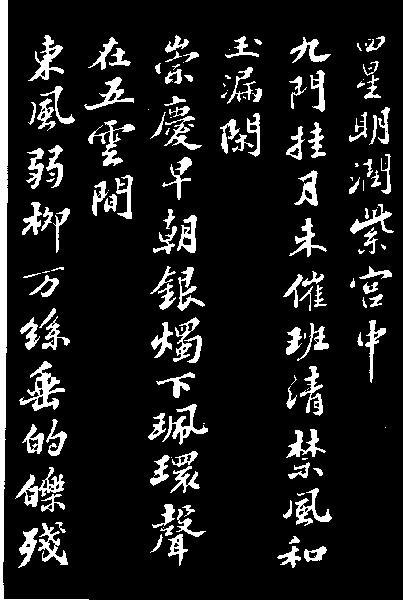 四星明潤紫宮中
九門挂月未催班清禁風和
玉漏閑
崇慶早朝銀燭下珮環聲
在五雲間
東風弱柳万絲垂的皪殘